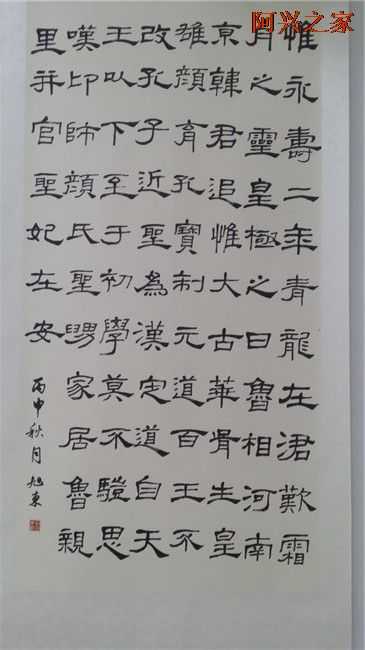 阿兴之家
惟永壽二年青龍在涒歎霜
月之靈皇極之日魯相河南
京韓君追惟大古華胥生皇
雄顏育孔寶制元道百王不
改孔子近聖為漢定道自天
王以下至于初學莫不驥思
嘆卬師顏氏聖舅家居魯親
里并官聖妃在安
丙申秋月旭東